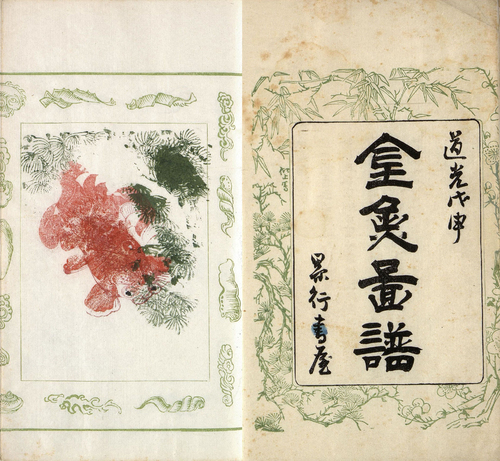 道光戊申
金魚圖譜
景行書屋